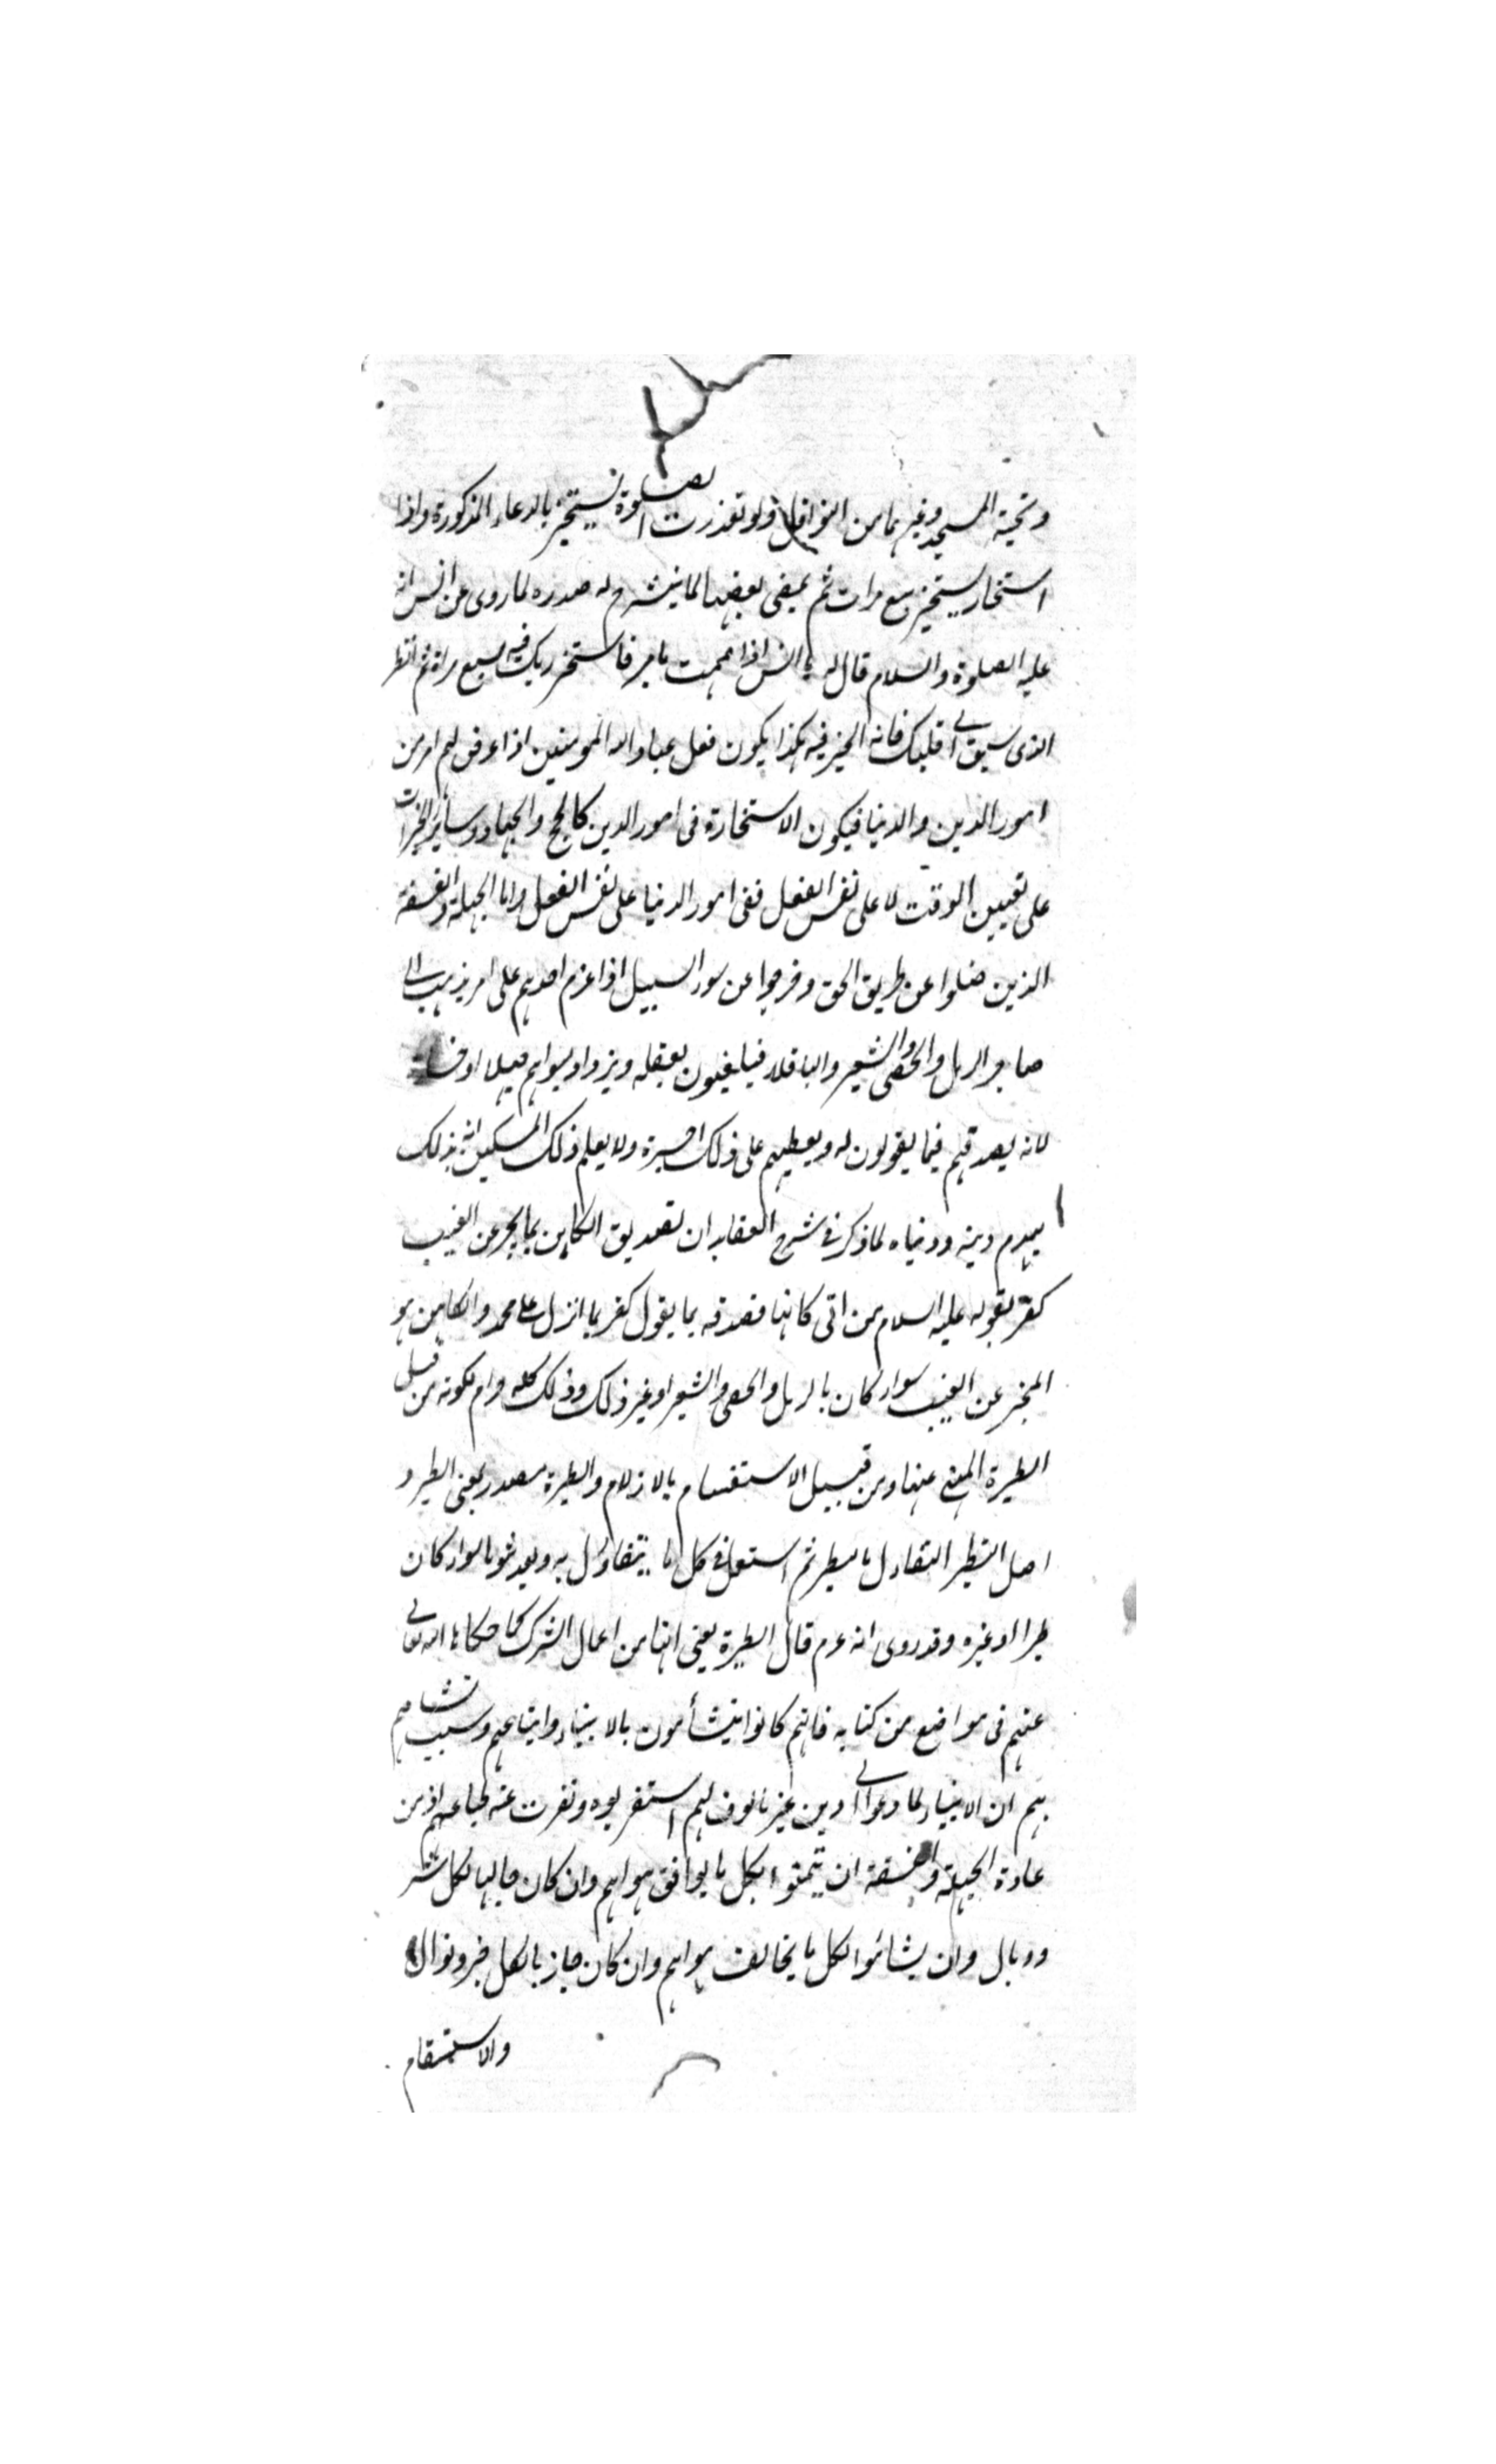 وتحية المسجد وغيرهما من النوافل ولو تعذرت الصلوة يستخير بالدعاء المذكورة واذا
استخار يستخير سبع مرات ثم يمضى بعضها لما ينشرح له صدره لما روى عن انس انه
عليه الصلوة والسلام قال له يا انس اذا هممت بامر فاستخر ربك فيه سبع مراة ثم انظر
الذى سبق الى قلبك فانه الخير فيه هكذا يكون فعل عباد الله المومنين اذا عرض لهم امر من
امور الدين والدنيا فيكون الاستخارة فى امور الدين كالحج والجهاد وسائر الخيرات
على تعيين الوقت لا على نفس الفعل ففى امور الدنيا على نفس الفعل واما الجهلة والفسقة
الذين ضلوا عن طريق الحق وخرجوا عن سواء السبيل اذا عزم احدهم على امر يذهب الى
صاحب الرمل والحصى والشعير والباقلاء فيلعبون بعقله ويزداد بسؤالهم جهلا او خسارة
لانه يصدقهم فيما يقولون له ويعطيهم على ذلك اجرة ولا يعلم ذلك المسكين انه بذلك
يهدم دينه ودنياه لما ذكر فى شرح العقايد ان تصديق الكاهن بما يخبر عن الغيب
كفر بقوله عليه السلام من اتى كاهنا فصدقه بما يقول كفر بما انزل على محمد والكاهن هو
المخبر عن الغيب سواء كان بالرمل والحصى والشعير او غير ذلك وذلك كله حرام لكونه من قبيل
الطيرة المنهى عنها ومن قبيل الاستقسام بالازلام والطيرة مصدر بمعنى التطير و
اصل التطير التفاءل بالطير ثم استعمل فى كل ما يتفاءل به ويعد شوما سواء كان
طيرا او غيره وقد روى انه عم قال الطيرة يعنى انها من اعمال الشرك كما حكاها الله تعالى
عنهم فى مواضع من كتابه فانهم كانوا يتشأمون بالانبياء واتباعهم وسبب تشامهم
بهم ان الانبياء لما دعوا الى دين غير مالوف لهم استغربوه ونفرت عنه طباعهم اذ من
عادة الجهلة والفسقة ان يتيمنوا بكل ما يوافق هواهم وان كان جالبا لكل شر
ووبال وان يشائموا لكل ما يخالف هواهم وان كان جازبا لكل خير ونوال
والاستقسام